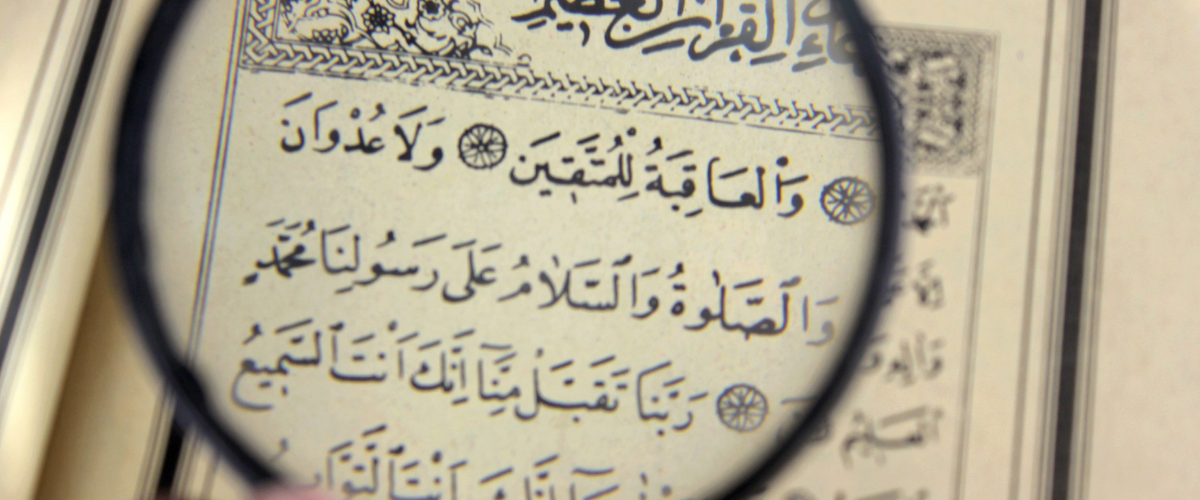 الْقُرْاٰنِ الْعَظِيمِ
وَالْعَاقِبَةُ لِلْمُتَّقِينَ ۝ وَلَا عُدْوَانَ
وَالصَّلٰوةُ وَالسَّلَامُ عَلٰى رَسُولِنَا مُحَمَّدٍ
رَبَّنَا تَقَبَّلْ مِنَّٓا اِنَّكَ اَنْتَ السَّمِيعُ
الْعَلِيمُ اِنَّكَ اَنْتَ التَّوَّابُ